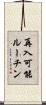 再入可能
ルーチン